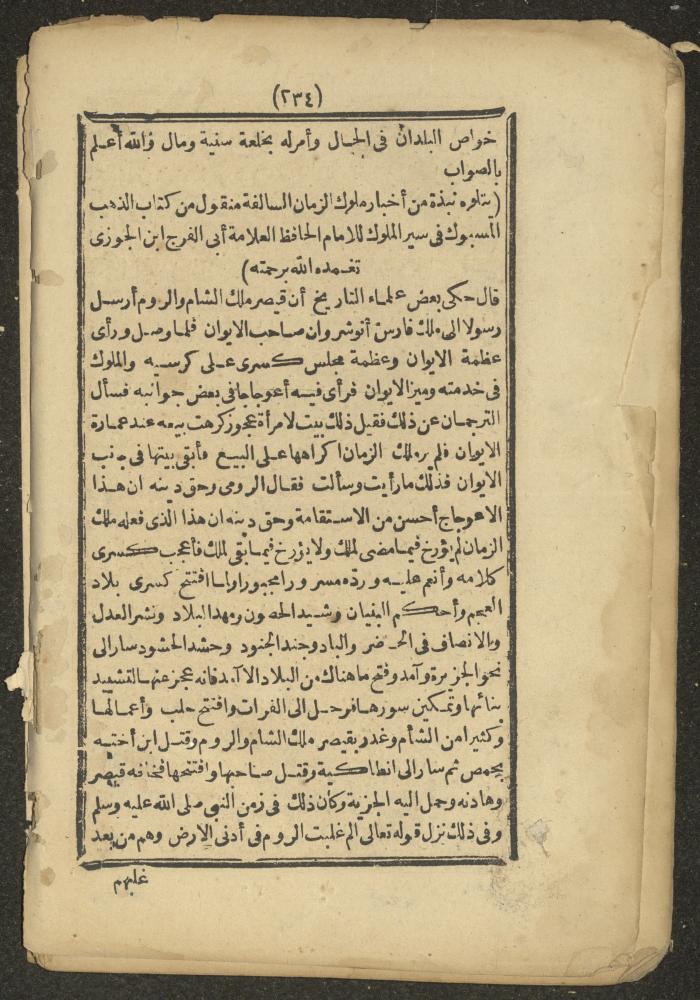 (٢٣٤)
خواص البلدان فى الحال وأمر له بخلعة سنية ومال والله أعلم
بالصواب
(يتلوه نبذة من أخبار ملوك الزمان السالفة منقول من كتاب الذهب
المسبوك فى سير الملوك للامام الحافظ العلامة أبى الفرج ابن الجوزى
تغمده الله برحمته)
قال حكى بعض علماء التاريخ أن قيصر ملك الشام والروم أرسل
رسولا الى ملك فارس أنوشروان صاحب الايوان فلما وصل ورأى
عظمة الايوان وعظمة مجلس كسرى على كرسيه والملوك
فى خدمته وميز الايوان فرأى فيه أعوجاجا فى بعض جوانبه فسأل
الترجمان عن ذلك فقيل ذلك بيت لامرأة عجوز كرهت بيعه عند عمارة
الايوان فلم ير ملك الزمان اكراهها على البيع فأبقى بيتها فى جانب
الايوان فذلك ما رأيت وسألت فقال الرومى وحق دينه ان هذا
الاعوجاج أحسن من الاستقامة وحق دينه ان هذا الذى فعله ملك
الزمان لم يؤرخ فيما مضى لملك ولا يؤرخ فيما بقى لملك فأعجب كسرى
كلامه وأنعم عليه ورده مسرورا مجبورا ولما افتتح كسرى بلاد
العجم وأحكم البنيان وشيد الحصون ومهد البلاد ونشر العدل
والانصاف فى الحاضر والباد وجند الجنود وحشد الحشود سار الى
نحو الجزيرة وآمد وفتح ما هناك من البلاد الا آمد فانه عجز عنها لتشييد
بنائها وتمكين سورها فرحل الى الفرات وافتتح حلب وأعمالها
وكثيرا من الشأم وغدر بقيصر ملك الشام والروم وقتل ابن أخته
بحمص ثم سار الى انطاكية وقتل صاحبها وافتتحها فخافه قيصر
وهادنه وحمل اليه الجزية وكان ذلك فى زمن النبى صلى الله عليه وسلم
وفى ذلك نزل قوله تعالى الم غلبت الروم فى أدنى الارض وهم من بعد
غلبهم